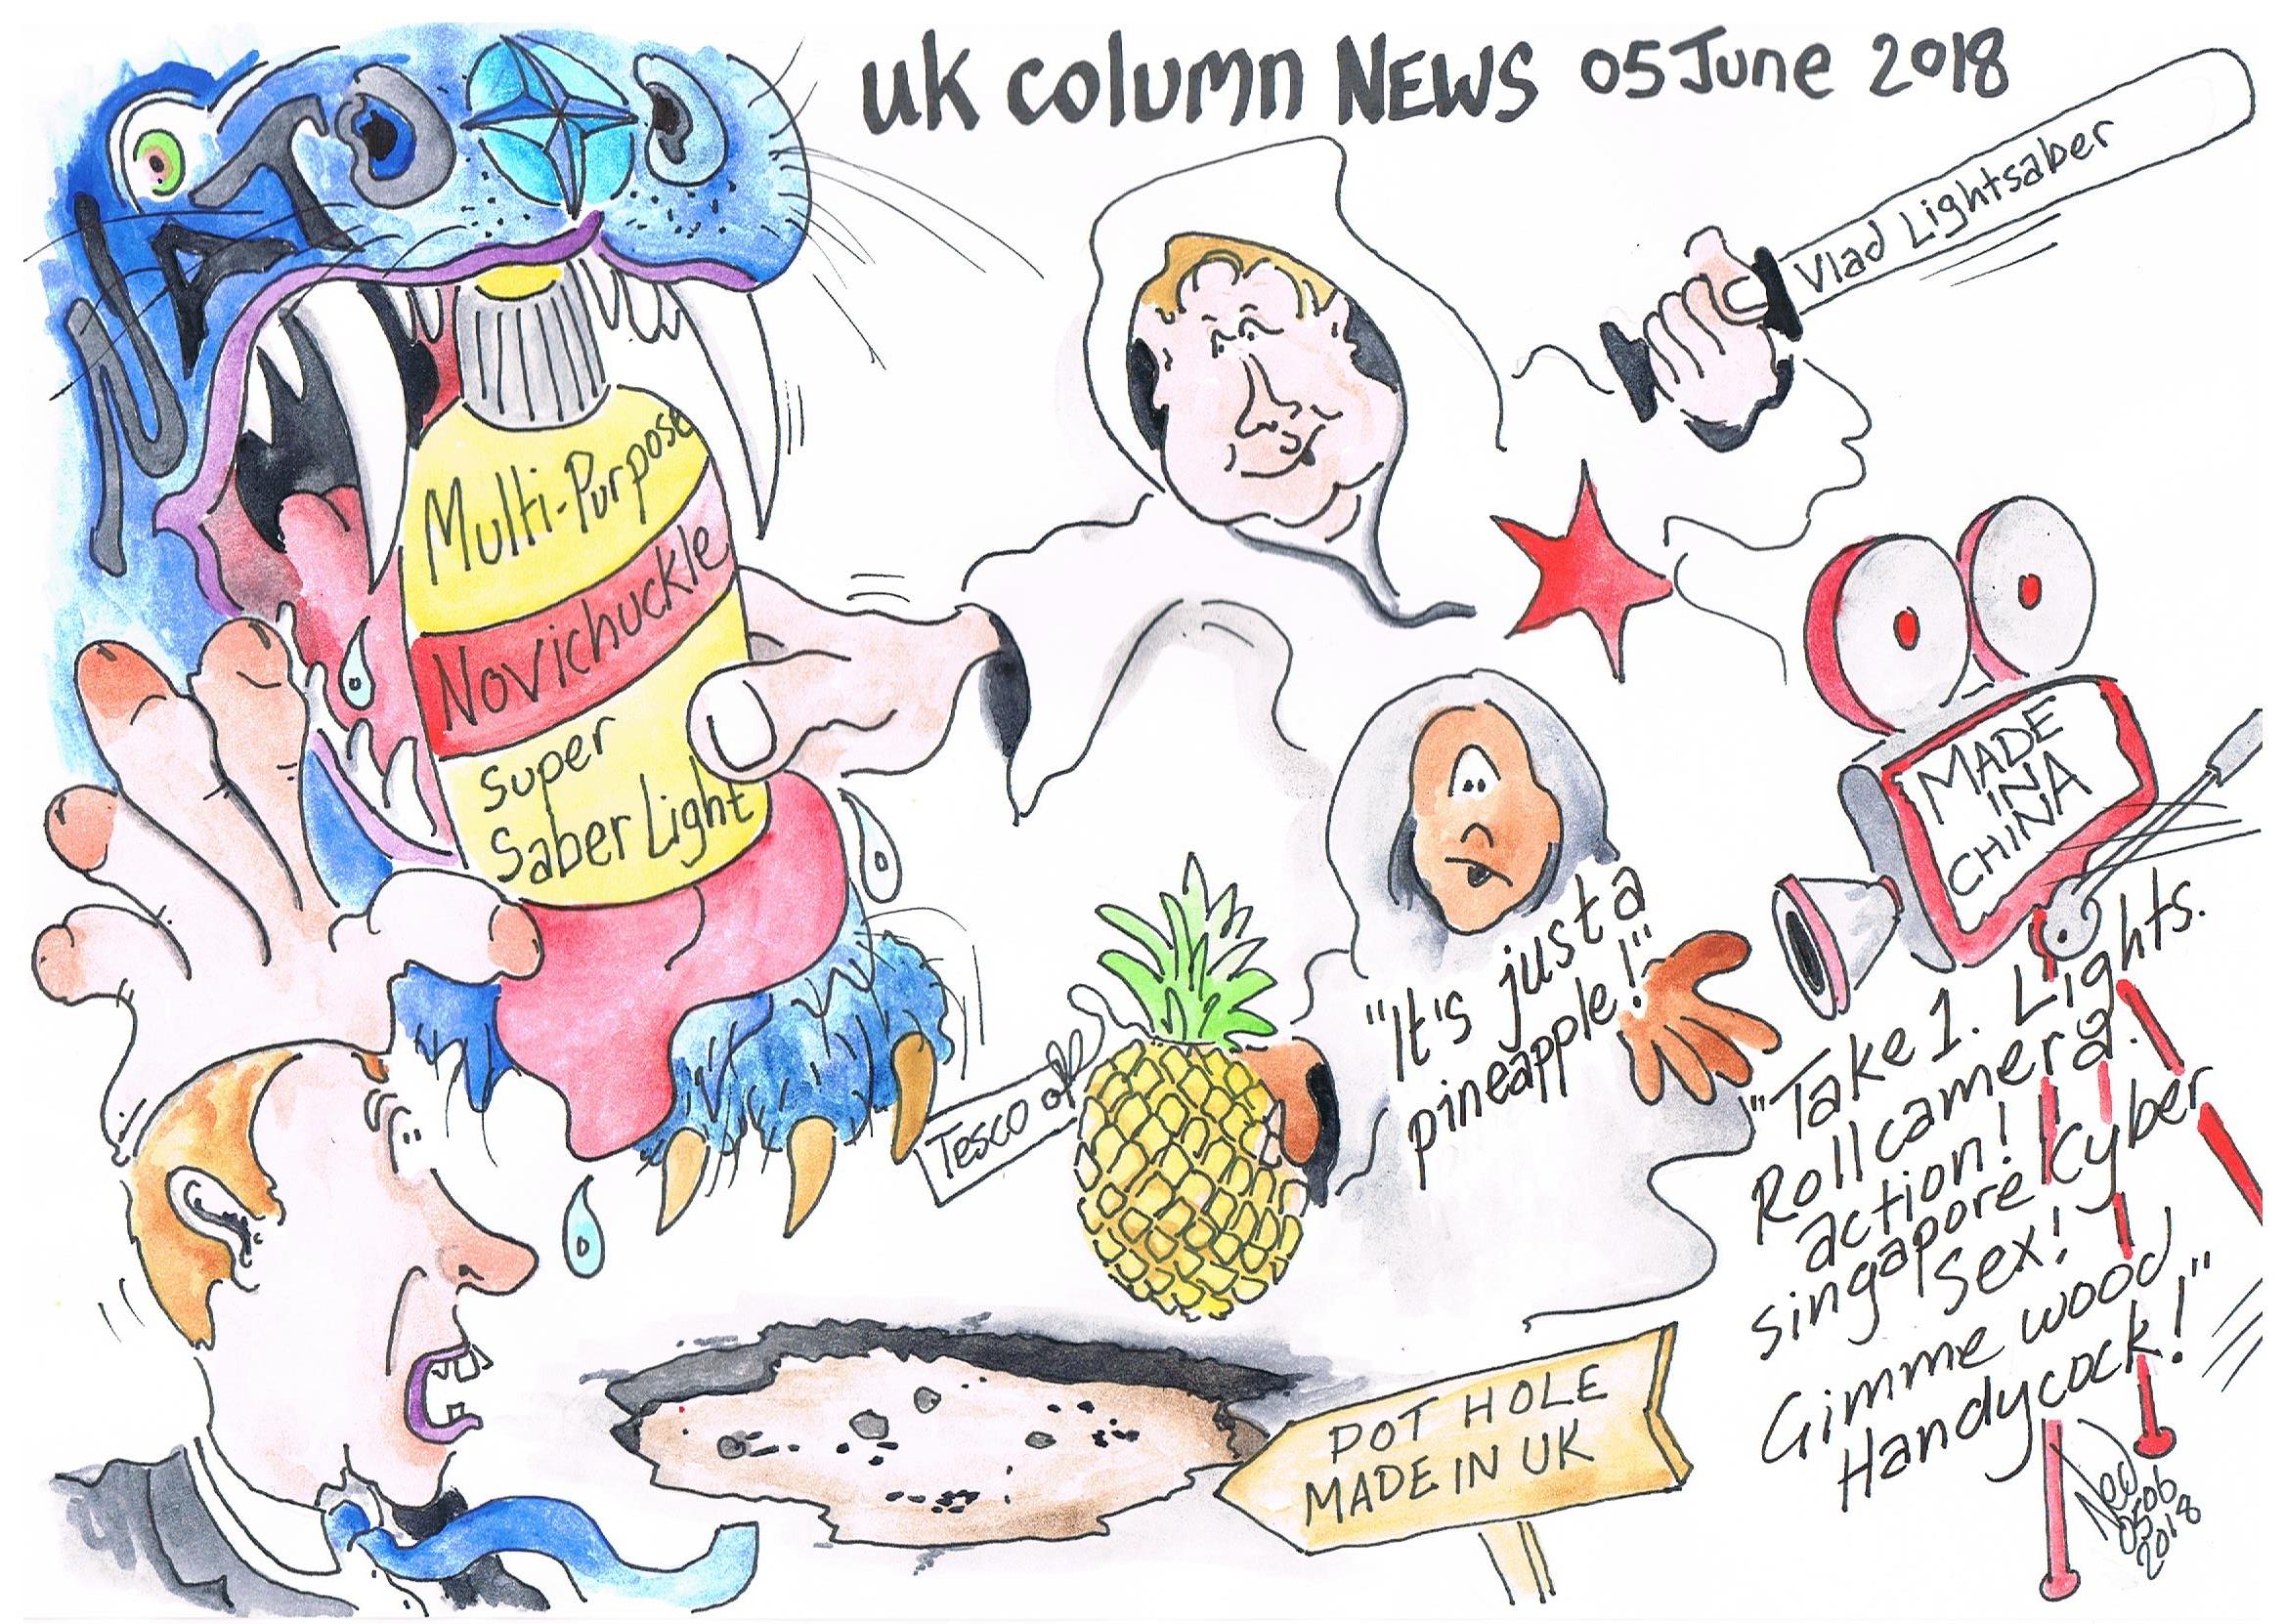 uk column NEWS 05 June 2018
NATO
Vlad Lightsaber
Multi-Purpose
Novichuckle
Super
Saber Light
MADE
IN
CHINA
"It's just a
pineapple!"
Tesco
"Take 1. Lights.
Roll camera.
action!
Singapore Kyber
Sex!
Gimme wood
Handycock!"
POT HOLE
MADE IN UK
05 06
2018